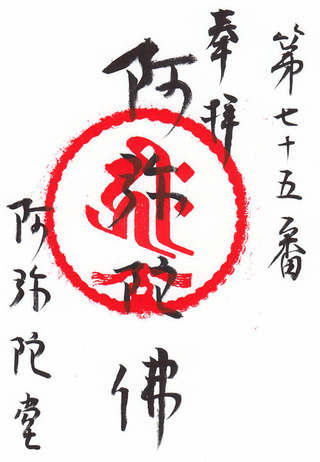 第七十五番
奉拝
阿弥陀佛
阿弥陀堂